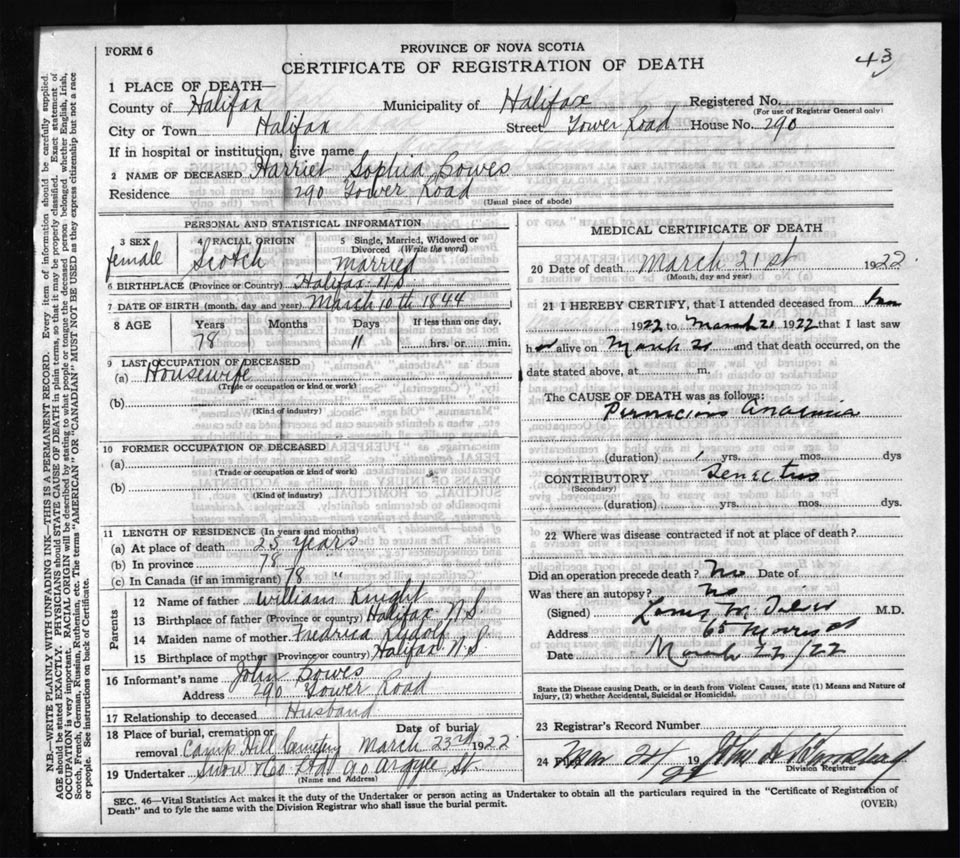 FORM 6
PROVINCE OF NOVA SCOTIA
43
CERTIFICATE OF REGISTRATION OF DEATH
1 PLACE OF DEATH—
County of Halifax Municipality of Halifax Registered No.
(For use of Registrar General only)
City or Town Halifax Street Tower Road House No. 290
If in hospital or institution, give name
2 NAME OF DECEASED Harriet Sophia Bowes
Residence 290 Tower Road
(Usual place of abode)
PERSONAL AND STATISTICAL INFORMATION
3 SEX female
4 RACIAL ORIGIN Scotch
5 Single, Married, Widowed or Divorced (Write the word) Married
6 BIRTHPLACE (Province or Country) Halifax N.S.
7 DATE OF BIRTH (month, day and year) March 10th 1844
8 AGE Years Months Days If less than one day,
78 11 hrs. or min.
9 LAST OCCUPATION OF DECEASED
(a) Housewife
(Trade or occupation or kind of work)
(b)
(Kind of industry)
10 FORMER OCCUPATION OF DECEASED
(a)
(Trade or occupation or kind of work)
(b)
(Kind of industry)
11 LENGTH OF RESIDENCE (In years and months)
(a) At place of death 25 years
(b) In province 78 "
(c) In Canada (if an immigrant) 78 "
Parents
12 Name of father William Knight
13 Birthplace of father (Province or country) Halifax N.S.
14 Maiden name of mother
15 Birthplace of mother (Province or country) Halifax N.S.
16 Informant's name John Bowes
Address 290 Tower Road
17 Relationship to deceased Husband
18 Place of burial, cremation or removal Camp Hill Cemetery Date of burial March 23rd 1922
19 Undertaker Snow & Co Ltd 90 Argyle St.
(Name and Address)
MEDICAL CERTIFICATE OF DEATH
20 Date of death March 21st 1922.
(Month, day and year)
21 I HEREBY CERTIFY, that I attended deceased from Jan
1922 to March 21 1922 that I last saw
her alive on March 21 and that death occurred, on the
date stated above, at m.
The CAUSE OF DEATH was as follows:
Pernicious Anaemia
(duration) yrs. mos. dys
CONTRIBUTORY Senectus
(Secondary)
(duration) yrs. mos. dys.
22 Where was disease contracted if not at place of death?
Did an operation precede death? No Date of
Was there an autopsy? No
(Signed) M.D.
Address 65 Morris St
Date March 22/22
State the Disease causing Death, or in death from Violent Causes, state (1) Means and Nature of
Injury, (2) whether Accidental, Suicidal or Homicidal.
23 Registrar's Record Number
24 Filed Mar 24 1922 John
Division Registrar
SEC. 46—Vital Statistics Act makes it the duty of the Undertaker or person acting as Undertaker to obtain all the particulars required in the "Certificate of Registration of
Death" and to fyle the same with the Division Registrar who shall issue the burial permit.
(OVER)
N.B.—WRITE PLAINLY WITH UNFADING INK—THIS IS A PERMANENT RECORD. Every item of information should be carefully supplied.
AGE should be stated EXACTLY. PHYSICIANS should STATE CAUSE OF DEATH in plain terms, so that it may be properly classified. Exact statement of
OCCUPATION is very important. RACIAL ORIGIN will be described by stating to what people or tongue the deceased person belonged, whether English, Irish,
Scotch, French, German, Russian, Ruthenian, etc. The terms "AMERICAN" OR "CANADIAN" MUST NOT BE USED as they express citizenship but not a race
or people. See instructions on back of Certificate.